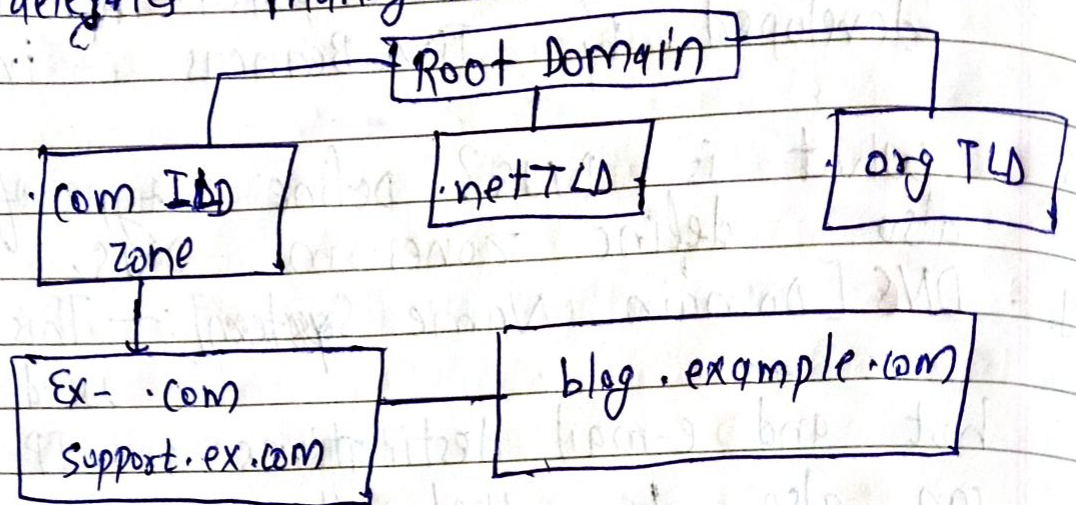 Root Domain
.com TLD
zone
.net TLD
.org TLD
Ex- .com
support.ex.com
blog.example.com